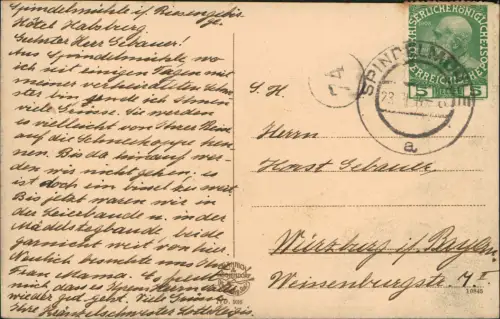 Spindelmühle i/ Riesengebirg.
Hôtel Habsburg
Geehrter Herr Gebauer!
Aus Spindelmühle, wo
ich seit einigen Tagen mit
meiner verheirateten Schwe-
ster bin sende ich Ihnen
viele Grüsse. Sie werden
es vielleicht von Ihrer Reise
auf die Schneekoppe her
kennen. Bis da hinauf wer-
den wir nicht gehen; es
ist doch ein bissel zu weit.
Bis jetzt waren wir in
der Leierbaude u. in der
Mädelstegbaude beide
garnicht weit von hier.
Neulich besuchte uns Ihre
Frau Mama. Es freute
mich dass es Ihrem Herrn
wieder gut geht. Viele Grüsse
Ihre
74
SPINDELMÜHLE
a
KAISERLICHE KÖNIGLICHE
ÖSTERREICHISCHE
5 5
S. H.
Herrn
Horst Gebauer
Würzburg i/ Bayern.
Weissenburgstr. 7